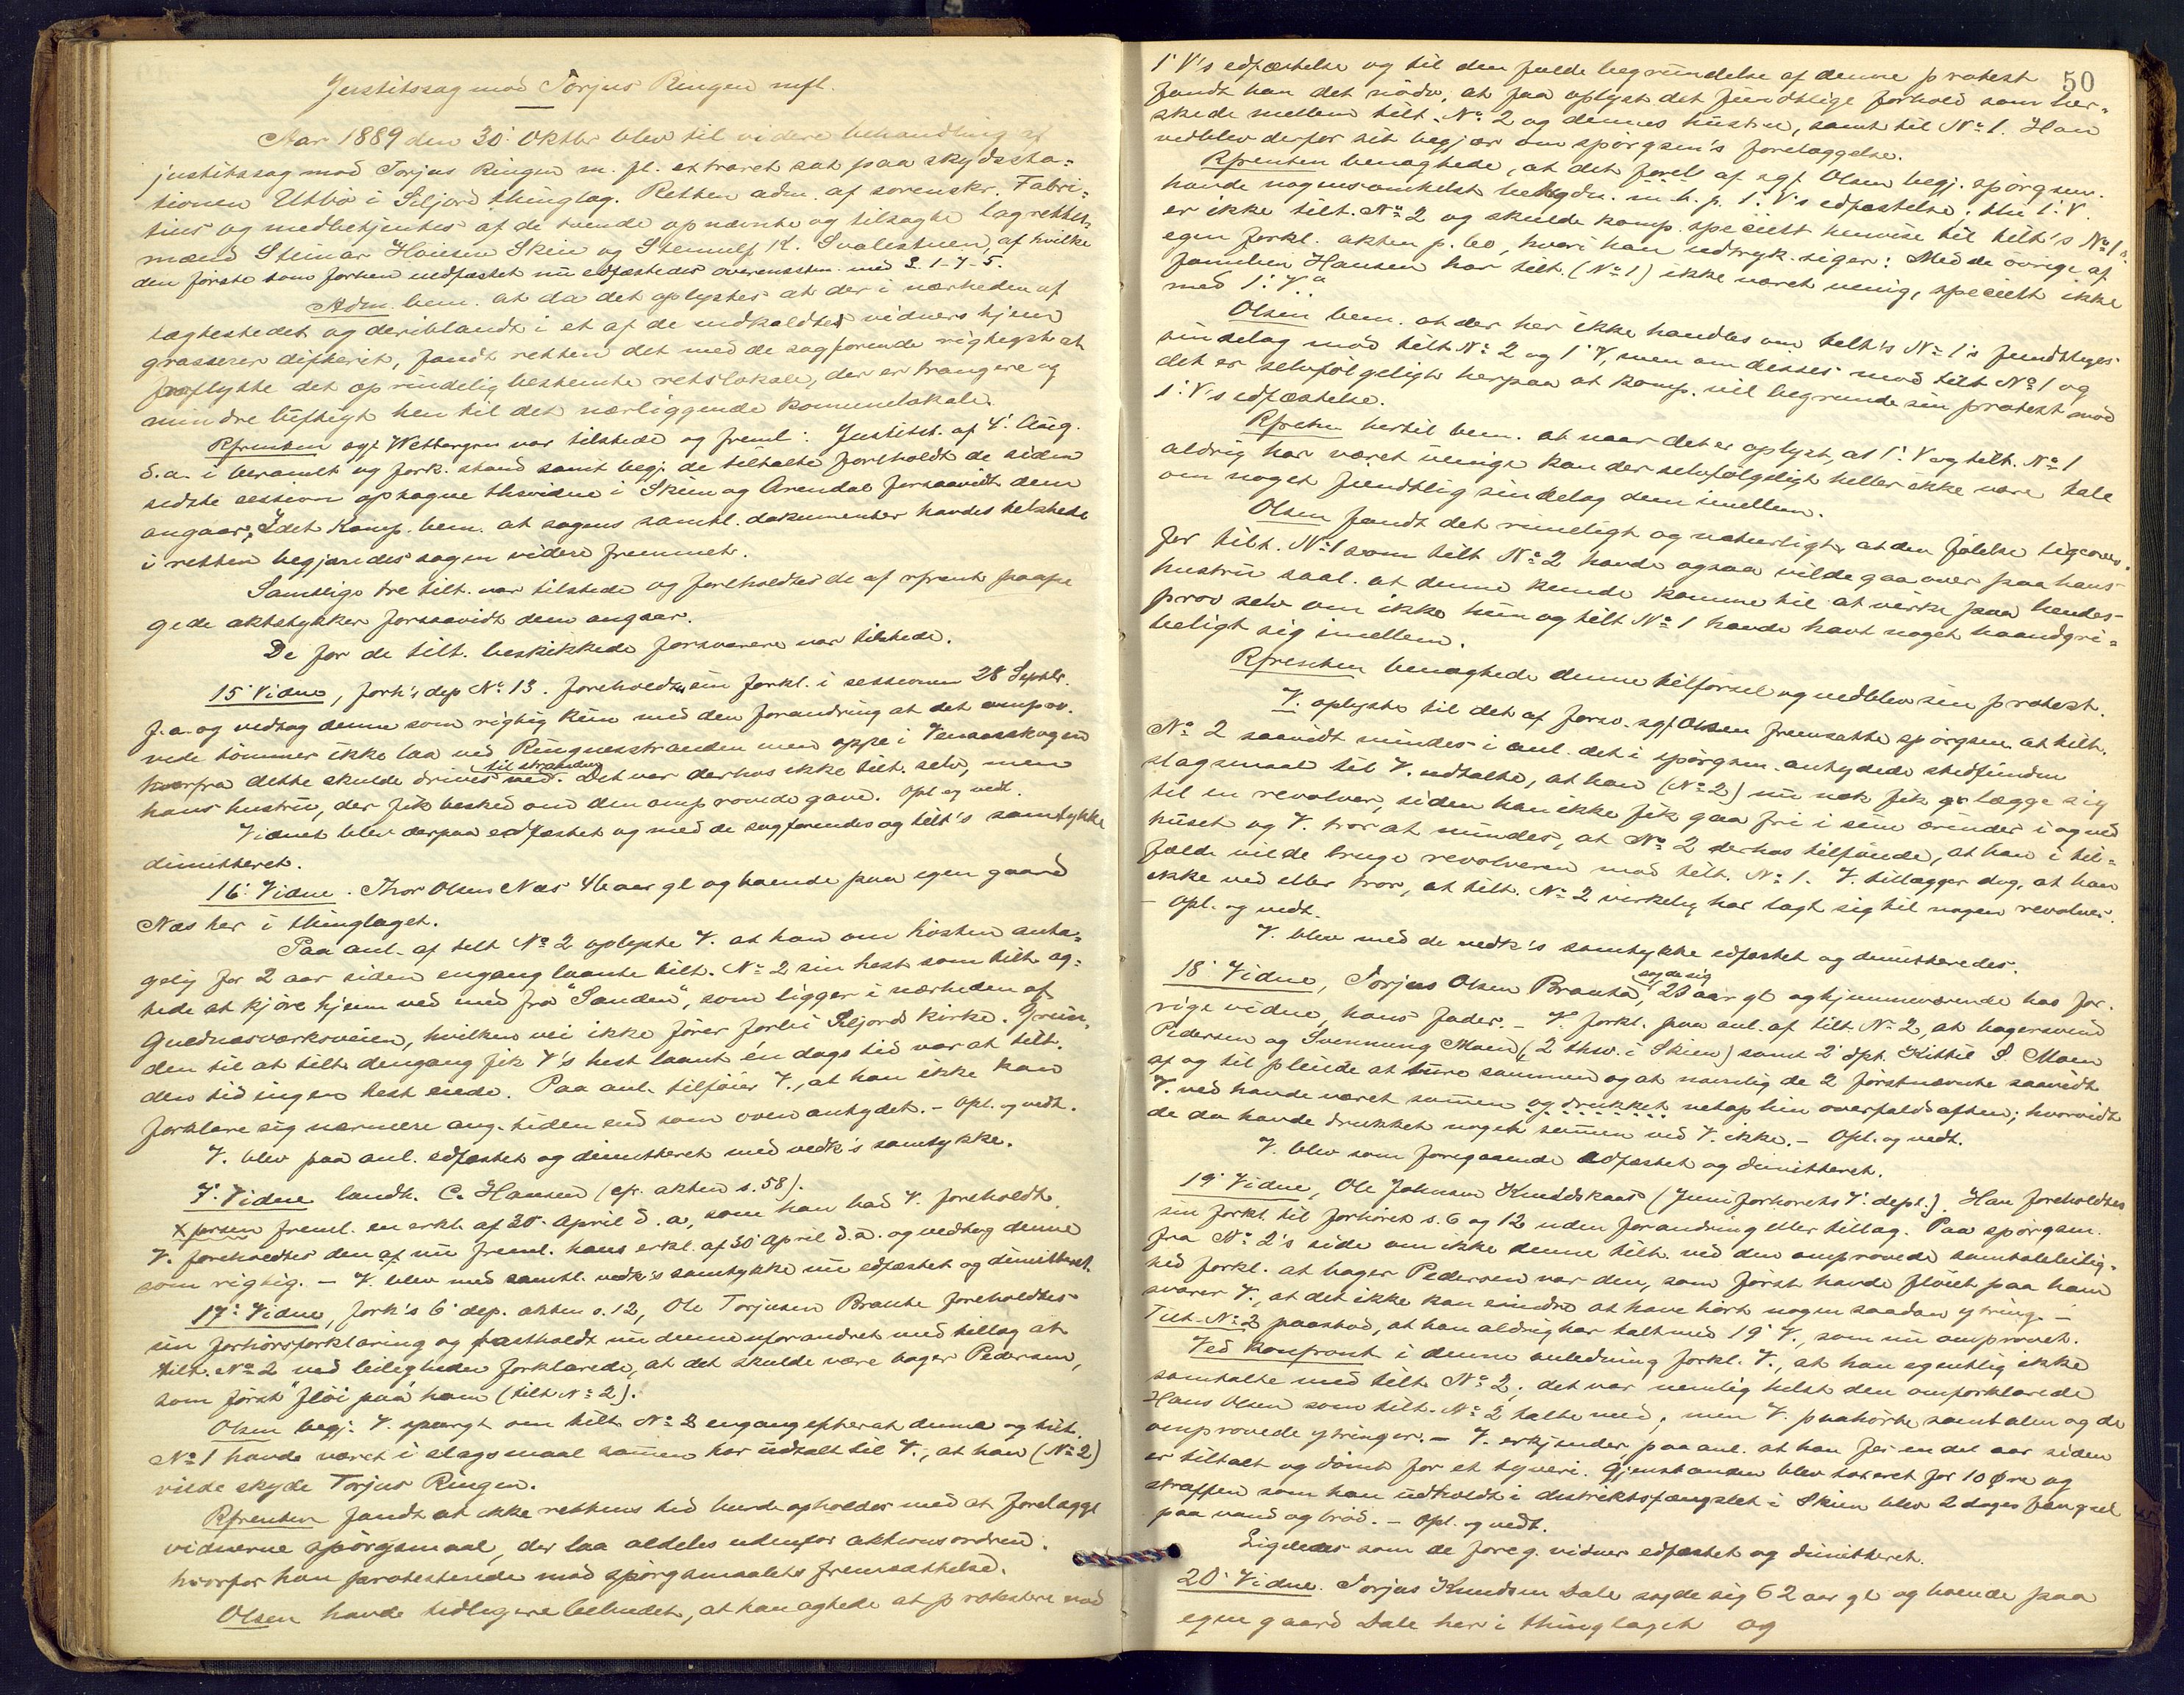 Justitssag mod Torjus Ringen mfl.
Aar 1889 den 30' Oktbr blev til videre behandling af
justitssag mod Torjus Ringen m. fl. extraret sat paa skydssta-
tionen Utbø i Seljord thinglag. Retten adm. af sorenskr. Fabri-
tius og medbetjentes af de tvende opnævnte og tilsagte lagrettes-
mænd Steinar Hansen Skien og Steinulf K. Svalestuen, af hvilke
den første som forhen edfæstet nu edfæstedes overensstm. med L 1-7-5.
Adm. bem. at da det oplystes at der i nærheden af
tægtestedet og deriblandt i et af de indkaldte vidners hjem
grasserer difterit, fandt retten det med de sagførende rigtigst at
forflytte det oprindelig bestemte retslokale, der er trangere og
mindre luftigt hen til det nærliggende kommunelokale.
Rfrenten sgf Wettergren var tilstede og freml: Justitst. af 4' Aug.
d.a. i beramt og fork. stand samt begj. de tiltalte foreholdt de siden
sidste session optagne thsvidne i Skien og Arendal forsaavidt dem
angaar; Idet Komp. bem. at sagens samtl. dokumenter havdes tilstede
i retten begjæredes sagen videre fremmet.
Samtlige tre tilt. var tilstede og foreholdtes de af rfrent paape-
gede aktstykker forsaavidt dem angaar.
De for de tilt. beskikkede forsvarere var tilstede.
15' Vidne, forh's dep No 13. foreholdtes sin forkl. i sessionen 28 Septbr.
f.a. og vedtog denne som rigtig kun med den forandring at det omprov.
vede tømmer ikke laa ved Ringnesstranden men oppe i Venaasskogen
hvorfra dette skulde drives til stranden ned. Det var derhos ikke tilt. selv, men
hans hustru, der fik besked om den omprovede gave. Opl og vedt.
Vidnet blev derpaa edfæstet og med de sagførendes og tilt's samtykke
dimitteret.
16' Vidne. Thor Olsen Næs 46 aar gl og boende paa egen gaard
Næs her i thinglaget.
Paa anl. af tilt No 2 oplyste V. at han om høsten anta-
gelig for 2 aar siden engang laante tilt. No 2 sin hest som tilt ag-
tede at kjøre hjem ved med fra "Sanden", som ligger i nærheden af
Guldnæsværksveien, hvilken vei ikke fører forbi Seljords kirke. Grun-
den til at tilt. dengang fik V's hest laant én dags tid var at tilt.
den tid ingen hest eiede. Paa anl. tilføier V., at han ikke kan
forklare sig nærmere ang. tiden end som oven antydet. - Opl. og vedt.
V. blev paa anl. edfæstet og dimitteret med vedk's samtykke.
7' Vidne landh. C. Hansen (cfr. akten s. 58).
freml. en erkl. af 30' April d.a, som han bad V. foreholdt.
V. foreholdtes den af nu freml. hans erkl. af 30' April d.a. og vedtog denne
som rigtig. - V. blev med samtl. vedk's samtykke nu edfæstet og dimitteret.
17' Vidne, fork's 6' dep. akten s. 12, Ole Torjusen Braute foreholdtes
sin forhørsforklaring og fastholdt nu denne uforandret med tillæg at
tilt. No 2 ved leiligheden forklarede, at det skulde være bager Pedersen,
som først "fløi paa" ham (tilt No 2).
Olsen begj. V. spurgt om tilt No 2 engang efterat denne og tilt.
No 1 havde været i slagsmaal sammen har udtalt til V., at han (No 2)
vilde skyde Torjus Ringen.
Rfrenten fandt at ikke rettens tid burde opholdes med at forelægge
vidnerne spørgsmaal, der laa aldeles udenfor aktionsordren.
hvorfor han protesterede mod spørgsmaalets fremsættelse.
Olsen havde tidligere bebudet, at han agtede at protestere mod
50
1' V's edfæstelse og til den fulde begrundelse af denne protest
fandt han det nødv. at faa oplyst det fiendtlige forhold som her-
skede mellem tilt. No 2 og dennes hustru, samt til No 1. Han
vedblev derfor sit begjær om spørgsm's forelæggelse.
Rfrenten benægtede, at det forel. af sgf. Olsen begj. spørgsm.
havde nogensomhelst betydn. m.h.p. 1' V's edfæstelse; thi 1' V.
er ikke tilt. No 2 og skulde komp. specielt henvise til tilt's No 1's
egen forkl. akten p. 60, hvori han udtryk. siger: "Med de øvrige af
familien Hansen har tilt. (No 1) ikke været uenig, specielt ikke
med 1' V."
Olsen bem. at der her ikke handles om tilt's No 1's fiendtlige
sindelag mod tilt No 2 og 1' V, men om disses mod tilt No 1 og
det er selvfølgeligt herpaa at komp. vil begrunde sin protest mod
1' V's edfæstelse.
Rfrenten hertil bem. at naar det er oplyst, at 1' V og tilt. No 1
aldrig har været uenige kan der selvfølgeligt heller ikke være tale
om noget fiendtlig sindelag dem imellem.
Olsen fandt det rimeligt og naturligt, at den følelse ligeover-
for tilt. No 1 som tilt No 2 havde ogsaa vilde gaa over paa hans
hustru saal. at denne kunde komme til at virke paa hendes
prov selv om ikke hun og tilt No 1 havde havt noget haandgri-
beligt sig imellem.
Rfrenten benægtede denne tilførsel og vedblev sin protest.
V. oplyste til det af forsv. sgf Olsen fremsatte spørgsm. at tilt.
No 2 saavidt mindes i anl. det i spørgsm. antydede stedfundne
slagsmaal til V. udtalte, at han (No 2) nu nok fik lægge sig
til en revolver, siden han ikke fik gaa fri i sine ærinder i og ved
huset og V. tror at mindes, at No 2 derhos tilføiede, at han i til-
fælde vilde bruge revolveren mod tilt. No 1. V. tillægger dog, at han
ikke ved eller tror, at tilt. No 2 virkelig har lagt sig til nogen revolver.
- Opl. og vedt.
V. blev med de vedk's samtykke edfæstet og dimitteredes.
18' Vidne, Torjus Olsen Brauta, sagde sig 23 aar gl og hjemmeværende hos for-
rige vidne, hans fader. - V. forkl. paa anl. af tilt. No 2, at bagersvend
Pedersen og Svennung Moen (2 thsv. i Skien) samt 2' dpt. Kittil S. Moen
af og til pleiede at ture sammen og at navnlig de 2 førstnævnte saavidt
V. ved havde været sammen og drukket netop hin overfaldsaften; hvorvidt
de da havde drukket noget sammen ved V. ikke. - Opl. og vedt.
V. blev som foregaaende edfæstet og dimitteret.
19' Vidne, Ole Johnsen Knudskaas (Juniforhørets 7' dept.). Han foreholdtes
sin forkl. til forhøret s. 6 og 12 uden forandring eller tillæg. Paa spørgsm.
fra No 2's side om ikke denne tilt. ved den omprovede samtaleleilig-
hed forkl. at bager Pedersen var den, som først havde fløiet paa ham
svarer V., at det ikke kan erindre at have hørt nogen saadan ytring. -
Tilt No 2 paastod, at han aldrig har talt med 19' V., som nu omprovet.
Ved konfront i denne anledning forkl. V., at han egentlig ikke
samtalte med tilt No 2; det var nemlig helst den omforklarede
Hans Olsen som tilt. No 2 talte med, men V. paahørte samtalen og de
omprovede ytringer. - V. erkjender paa anl. at han for en del aar siden
er tiltalt og dømt for et tyveri. Gjenstanden blev taxeret for 10 Øre og
straffen som han udholdt i distriktsfængslet i Skien blev 2 dages fængsel
paa vand og brød. - Opl. og vedt.
Ligeledes som de foreg. vidner edfæstet og dimitteret.
20' Vidne. Torjus Knudsen Dale sagde sig 62 aar gl og boende paa
egen gaard Dale her i thinglaget og